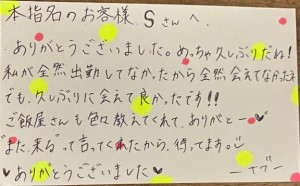 本指名のお客様 Sさんへ
ありがとうございました。めっちゃ久しぶりだね!
私が全然出勤してなかったから全然会えてなかったけど
でも、久しぶりに会えて良かったです!!
ご飯屋さんも色々教えてくれて、ありがとー♥
"また来る"って言ってくれたから、待ってます。
ありがとうございました♥